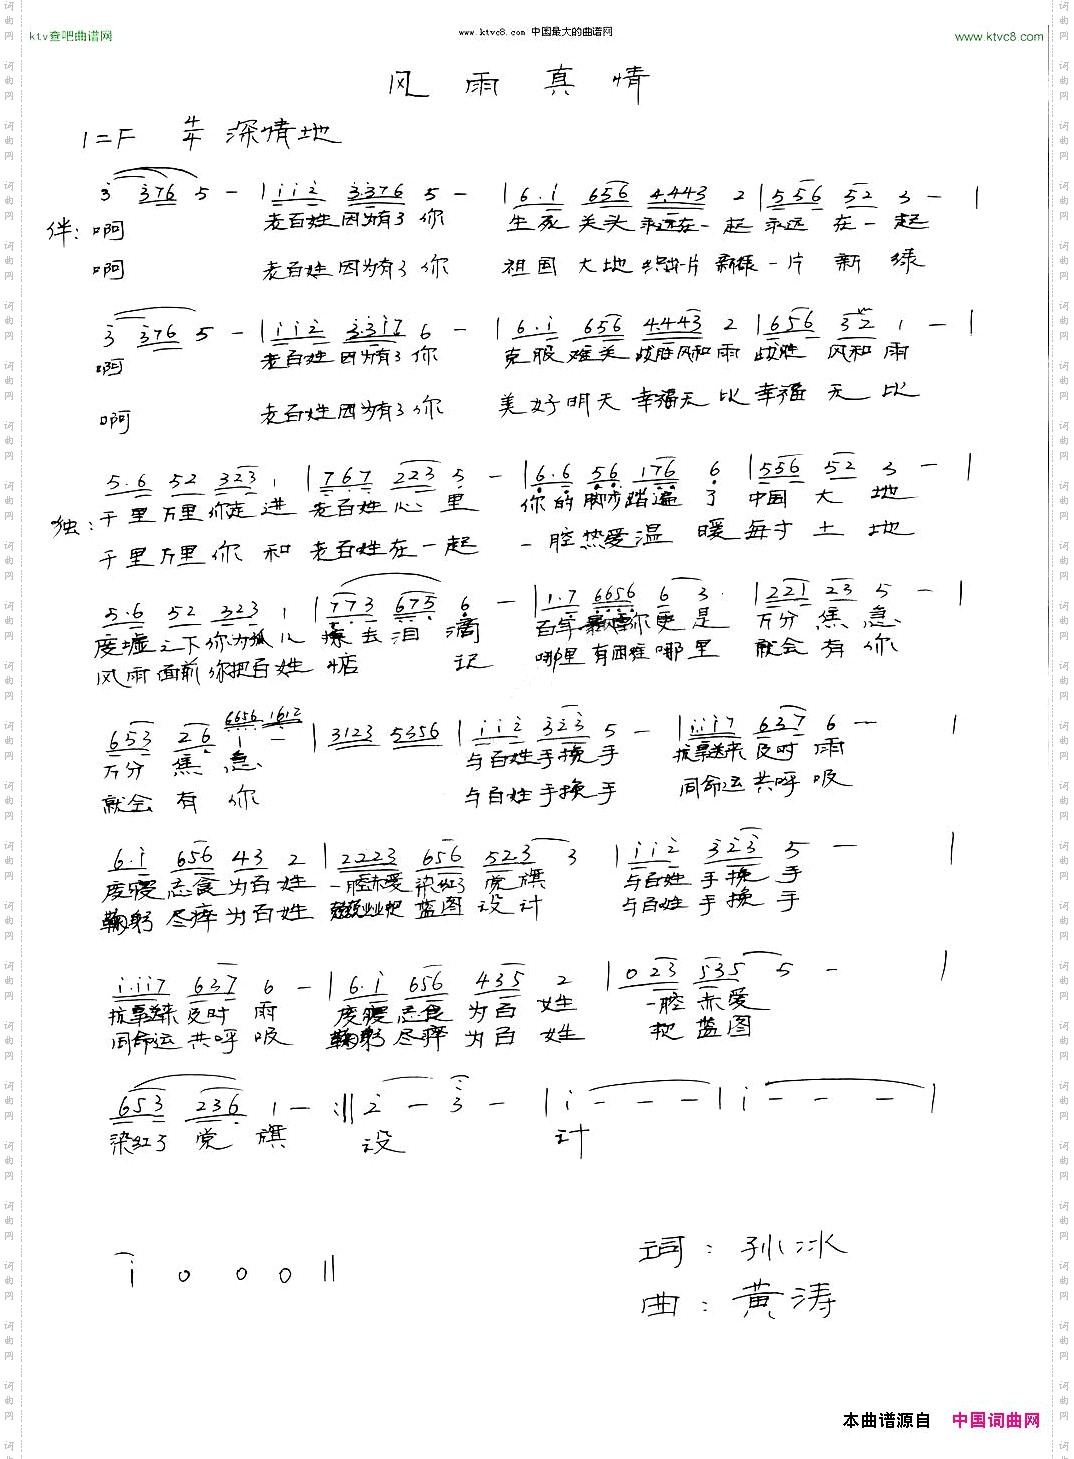 ktv查吧曲谱网
www.ktvc8.com 中国最大的曲谱网
www.ktvc8.com
风雨真情
1=F 4/4 深情地
3 376 5 - | 1 1 2 3.376 5 - | 6.1 656 4.443 2 | 5 56 52 3 - |
伴: 啊 老百姓 因为有了 你 生死关头 永远在一起 永远 在一起
啊 老百姓 因为有了 你 祖国大地 一片 新绿 一片 新绿
3 376 5 - | 1 1 2 3 3 1 7 6 - | 6.1 656 4.443 2 | 656 32 1 - |
啊 老百姓 因为有了 你 克服难关 战胜风和雨 战胜 风和雨
啊 老百姓 因为有了 你 美好明天 幸福无比 幸福 无比
5.6 52 323 1 | 767 223 5 - | 6.6 56 176 6 | 556 52 3 - |
独: 千里万里 你走进 老百姓心里 你的脚步踏遍了 中国大地
千里万里 你和老百姓在一起 一腔热爱温暖每寸土地
5.6 52 323 1 | 773 675 6 - | 1.7 6656 6 3 | 221 23 5 - |
废墟之下 你为孤儿 擦去泪滴 百年 你更是 万分焦急
风雨面前 你把百姓 惦记 哪里有困难哪里 就会有你
653 26 6656 1612 1 - | 3123 5356 | 1 1 2 323 5 - | 1.117 637 6 - |
万分 焦急 与百姓手挽手 抗旱送来 及时雨
就会有你 与百姓手挽手 同命运共呼吸
6.1 656 43 2 | 2223 656 523 3 | 1 1 2 323 5 - |
废寝忘食 为百姓 一腔赤爱 染红了 党旗 与百姓 手挽手
鞠躬尽瘁 为百姓 把 蓝图设计 与百姓 手挽手
1.117 637 6 - | 6.1 656 435 2 | 0 23 535 5 - |
抗旱送来 及时雨 废寝忘食 为百姓 一腔赤爱
同命运共呼吸 鞠躬尽瘁 为百姓 把蓝图
653 236 1 - :|| 2 - 3 - | 1 - - - | 1 - - - |
染红了 党旗 设 计
1 0 0 0 ||
词: 孙冰
曲: 黄涛
本曲谱源自 中国词曲网